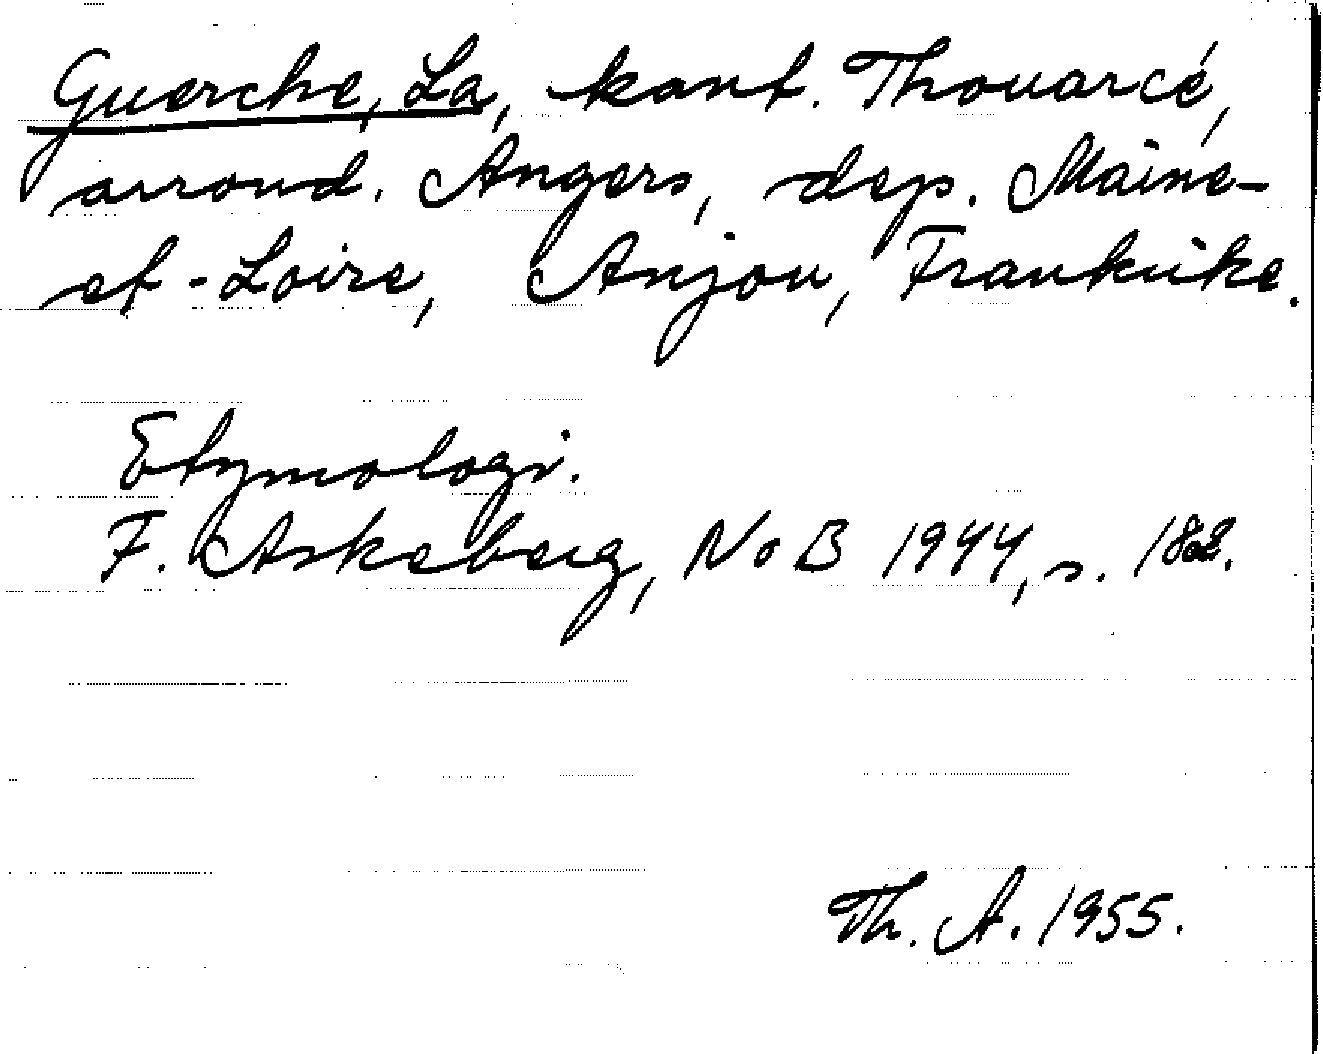 Guerche, La, kant. Thouarcé,
arrond. Angers, dep. Maine-
et-Loire, Anjou, Frankrike.
Etymologi.
F. Askeberg, NoB 1944, s. 182.
Th. A. 1955.